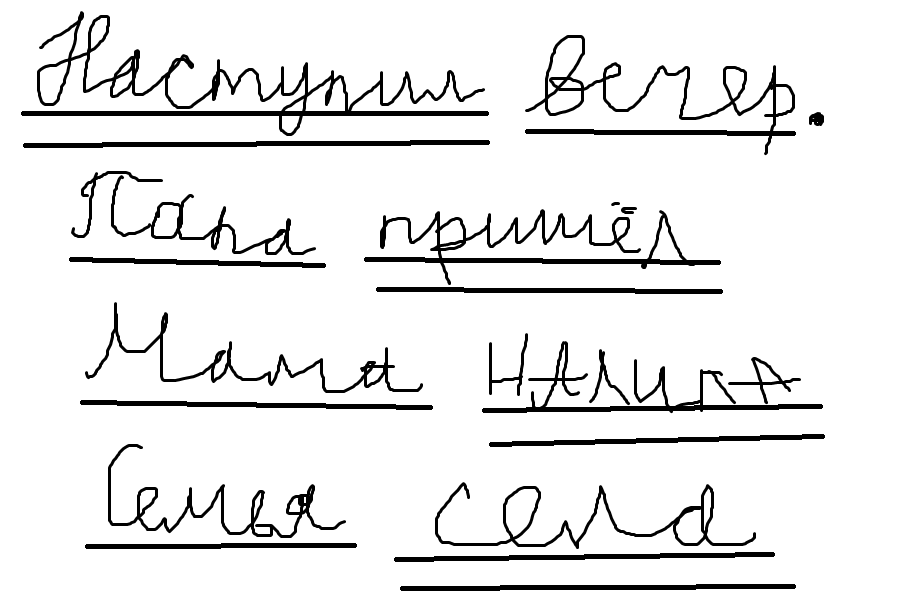 Наступил Вечер.
Папа пришёл
Мама НАЛИЛА
Семья села